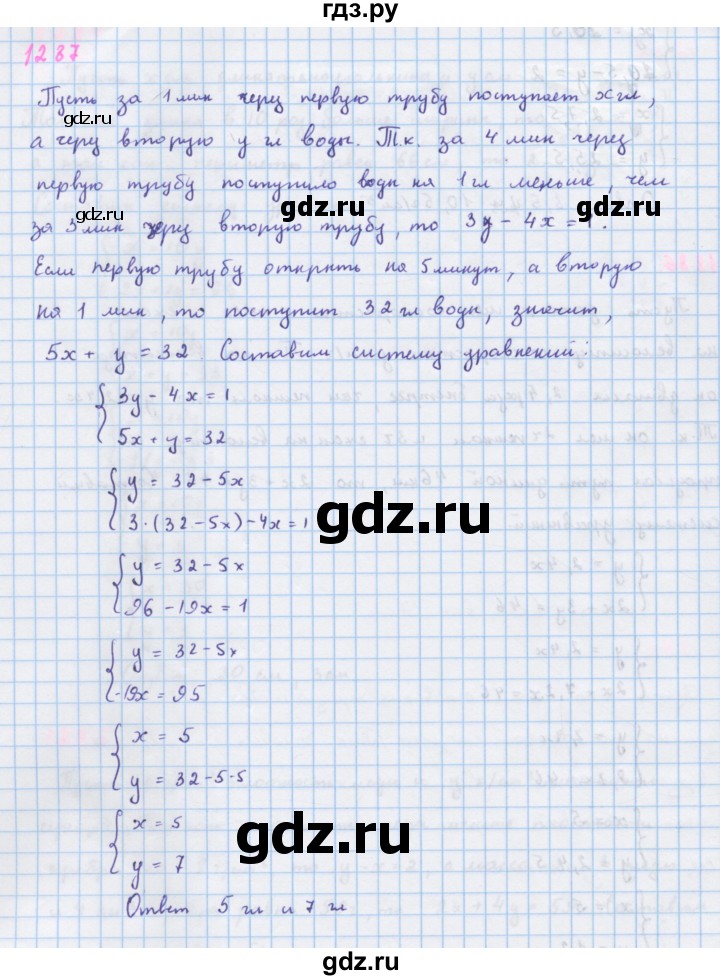 гдз.ру
1287
Пусть за 1 мин через первую трубу поступает x гл,
а через вторую y гл воды. Т.к. за 4 мин через
первую трубу поступило воды на 1 гл меньше, чем
за 3 мин через вторую трубу, то 3y - 4x = 1.
Если первую трубу открыть на 5 минут, а вторую
на 1 мин, то поступит 32 гл воды, значит,
5x + y = 32. Составим систему уравнений:
3y - 4x = 1
5x + y = 32
y = 32 - 5x
3·(32 - 5x) - 4x = 1
y = 32 - 5x
96 - 19x = 1
y = 32 - 5x
-19x = 95
x = 5
y = 32 - 5·5
x = 5
y = 7
Ответ 5 гл и 7 гл
gdz.ru
gdz.ru
gdz.ru
gdz.ru
gdz.ru
gdz.ru
gdz.ru
gdz.ru
gdz.ru
gdz.ru
gdz.ru
gdz.ru
gdz.ru